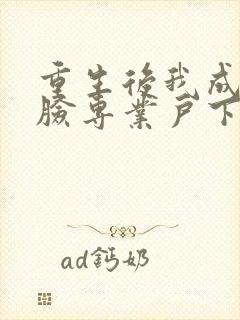 重生後我成
臉專業戶下
ad鈣奶